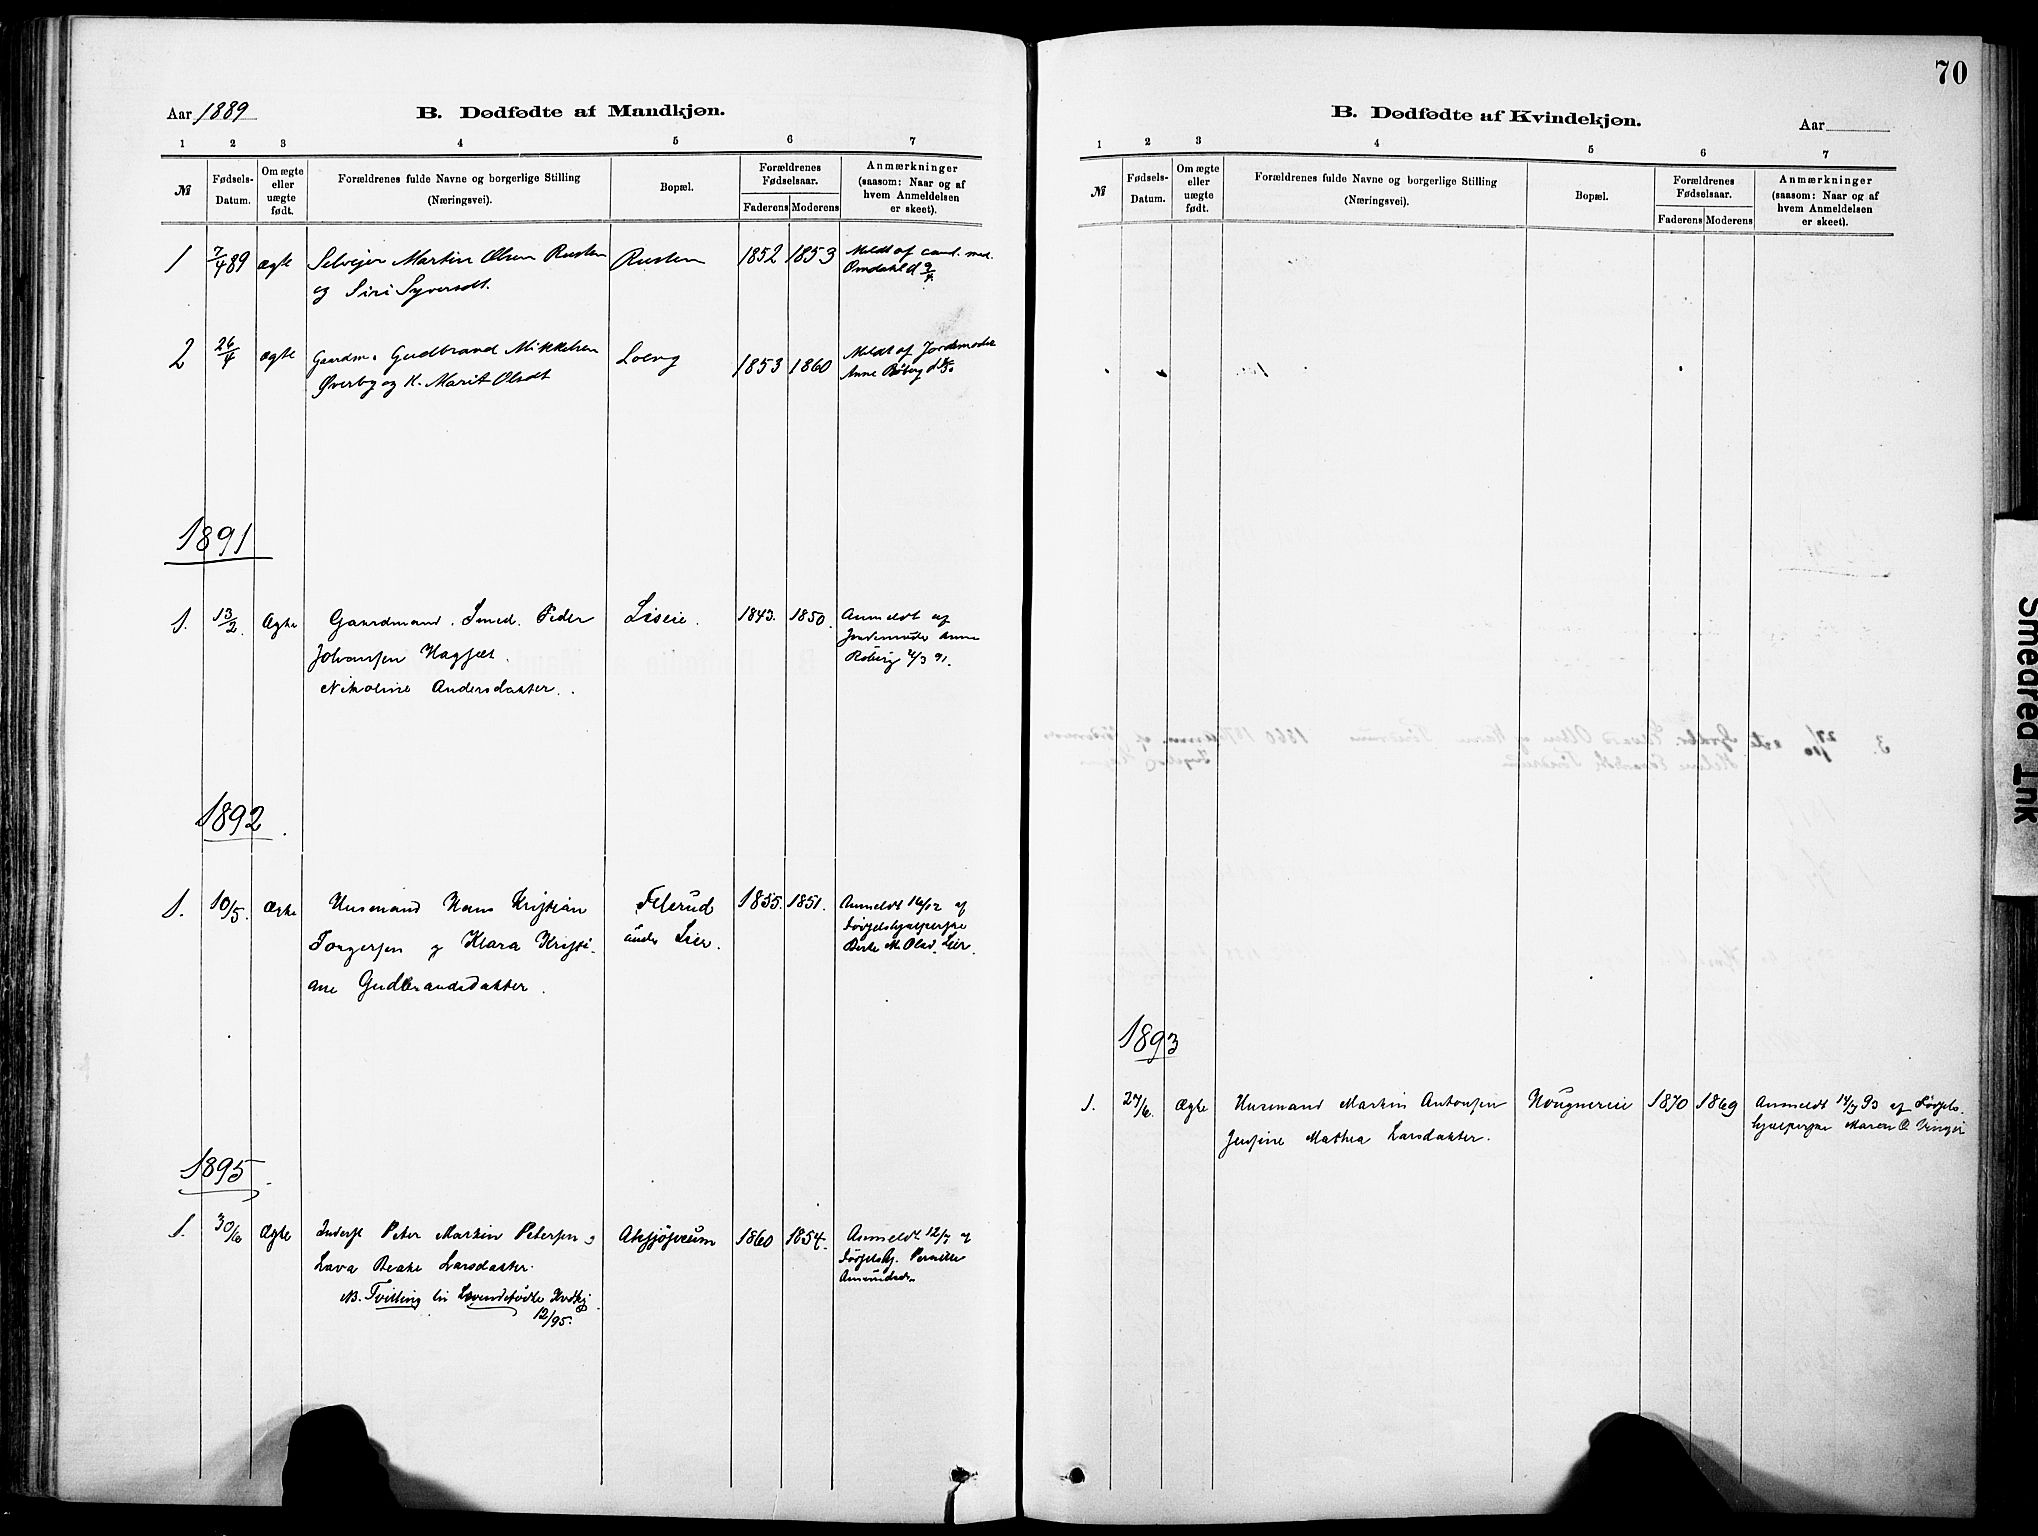 70
Aar 1889
B. Dødfødte af Mandkjøn.
1 2 3 4 5 6 7
№
Fødsels-Datum.
Om ægte eller uægte født.
Forældrenes fulde Navne og borgerlige Stilling
(Næringsvei).
Bopæl.
Forældrenes Fødselsaar.
Faderens Moderens
Anmærkninger
(saasom: Naar og af
hvem Anmeldelsen
er skeet).
1 7/4 89 ægte Selveier Martin Olsen Rusten Rusten 1852 1853 Meldt af cand. med.
og Siri Syversdt. Omdahl d 9/4
2 26/4 ægte Gaardm. Gudbrand Mikkelsen Loeng 1853 1860 Meldt af Jordemoder
Øverby og K. Marit Olsdt Anne Røberg d
1891
1. 13/2 Ægte Gaardmand. Smed. Peder Liseie. 1843. 1850. Anmeldt af
Johansen Jordemoder Anne
Nikoline Andersdatter. Røberg /3 91.
1892
1. 10/5. Ægte Husmand Hans Kristian 1855. 1851. Anmeldt 16/12 af
Torgersen og Klara Kristi- under Lier. Førselshjælperske
ane Gudbrandsdatter. Berte M. Olsd. Lier.
1895
1. 30/6 Ægte Inderst Peter Martin Petersen og 1860 1854. Anmeldt 12/7 af
Lava Beate Larsdatter. Førselshj. Pernille
NB. Tvilling til Levendefødte Kvdkj Amundsdr.
12/95.
B. Dødfødte af Kvindekjøn.
Aar
1 2 3 4 5 6 7
№
Fødsels-Datum.
Om ægte eller uægte født.
Forældrenes fulde Navne og borgerlige Stilling
(Næringsvei).
Bopæl.
Forældrenes Fødselsaar.
Faderens Moderens
Anmærkninger
(saasom: Naar og af
hvem Anmeldelsen
er skeet).
1893
1. 27/6. Ægte Husmand Martin Antonsen Hougnereie 1870 1869 Anmeldt 14/7 93 af Førsels-
Josfine Mathea Larsdatter. hjælperske Maren O.
Smeared Ink